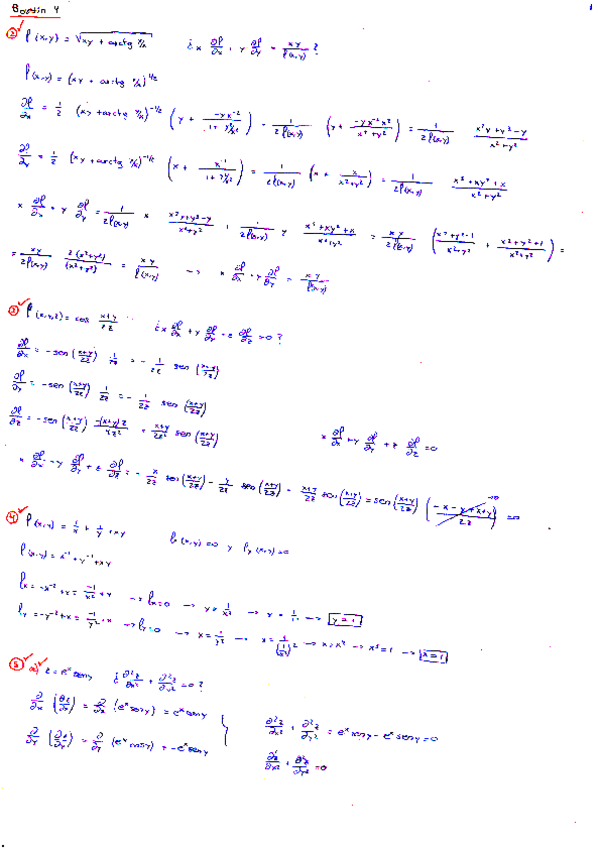 Boletín 4
② f(x,y) = √(xy + arctg y/x)   ¿x ∂f/∂x + y ∂f/∂y = xy/f(x,y)?
f(x,y) = (xy + arctg y/x)^1/2
∂f/∂x = 1/2 (xy + arctg y/x)^-1/2 (y + -yx^-2/(1 + y²/x²)) = 1/(2f(x,y)) (y + -yx^-2x²/(x²+y²)) = 1/(2f(x,y)) (x²y+y³-y)/(x²+y²)
∂f/∂y = 1/2 (xy + arctg y/x)^-1/2 (x + x^-1/(1 + y²/x²)) = 1/(2f(x,y)) (x + x/(x²+y²)) = 1/(2f(x,y)) (x³+xy²+x)/(x²+y²)
x ∂f/∂x + y ∂f/∂y = 1/(2f(x,y)) x (x²y+y³-y)/(x²+y²) + 1/(2f(x,y)) y (x³+xy²+x)/(x²+y²) = xy/(2f(x,y)) ((x²+y²-1)/(x²+y²) + (x²+y²+1)/(x²+y²)) =
= xy/(2f(x,y)) 2(x²+y²)/(x²+y²) = xy/f(x,y) → x ∂f/∂x + y ∂f/∂y = xy/f(x,y)
③ f(x,y,z) = cos (x+y)/2z   ¿x ∂f/∂x + y ∂f/∂y + z ∂f/∂z = 0?
∂f/∂x = -sen((x+y)/2z) 1/2z = - 1/2z sen((x+y)/2z)
∂f/∂y = -sen((x+y)/2z) 1/2z = - 1/2z sen((x+y)/2z)
∂f/∂z = -sen((x+y)/2z) -(x+y)2/4z² = (x+y)/2z² sen((x+y)/2z)   x ∂f/∂x + y ∂f/∂y + z ∂f/∂z = 0
④ f(x,y) = 1/x + 1/y + xy   fx(x,y)=0 y fy(x,y)=0
f(x,y) = x^-1 + y^-1 + xy
fx = -x^-2 + y = -1/x² + y → fx=0 → y = 1/x² → y = 1/1 → y = 1
⑤ a) z = e^x seny   ¿∂²z/∂x² + ∂²z/∂y² = 0?
∂/∂x (∂z/∂x) = ∂/∂x (e^x seny) = e^x seny
∂/∂y (∂z/∂y) = ∂/∂y (e^x cosy) = -e^x seny
∂²z/∂x² + ∂²z/∂y² = e^x seny - e^x seny = 0
∂²z/∂x² + ∂²z/∂y² = 0